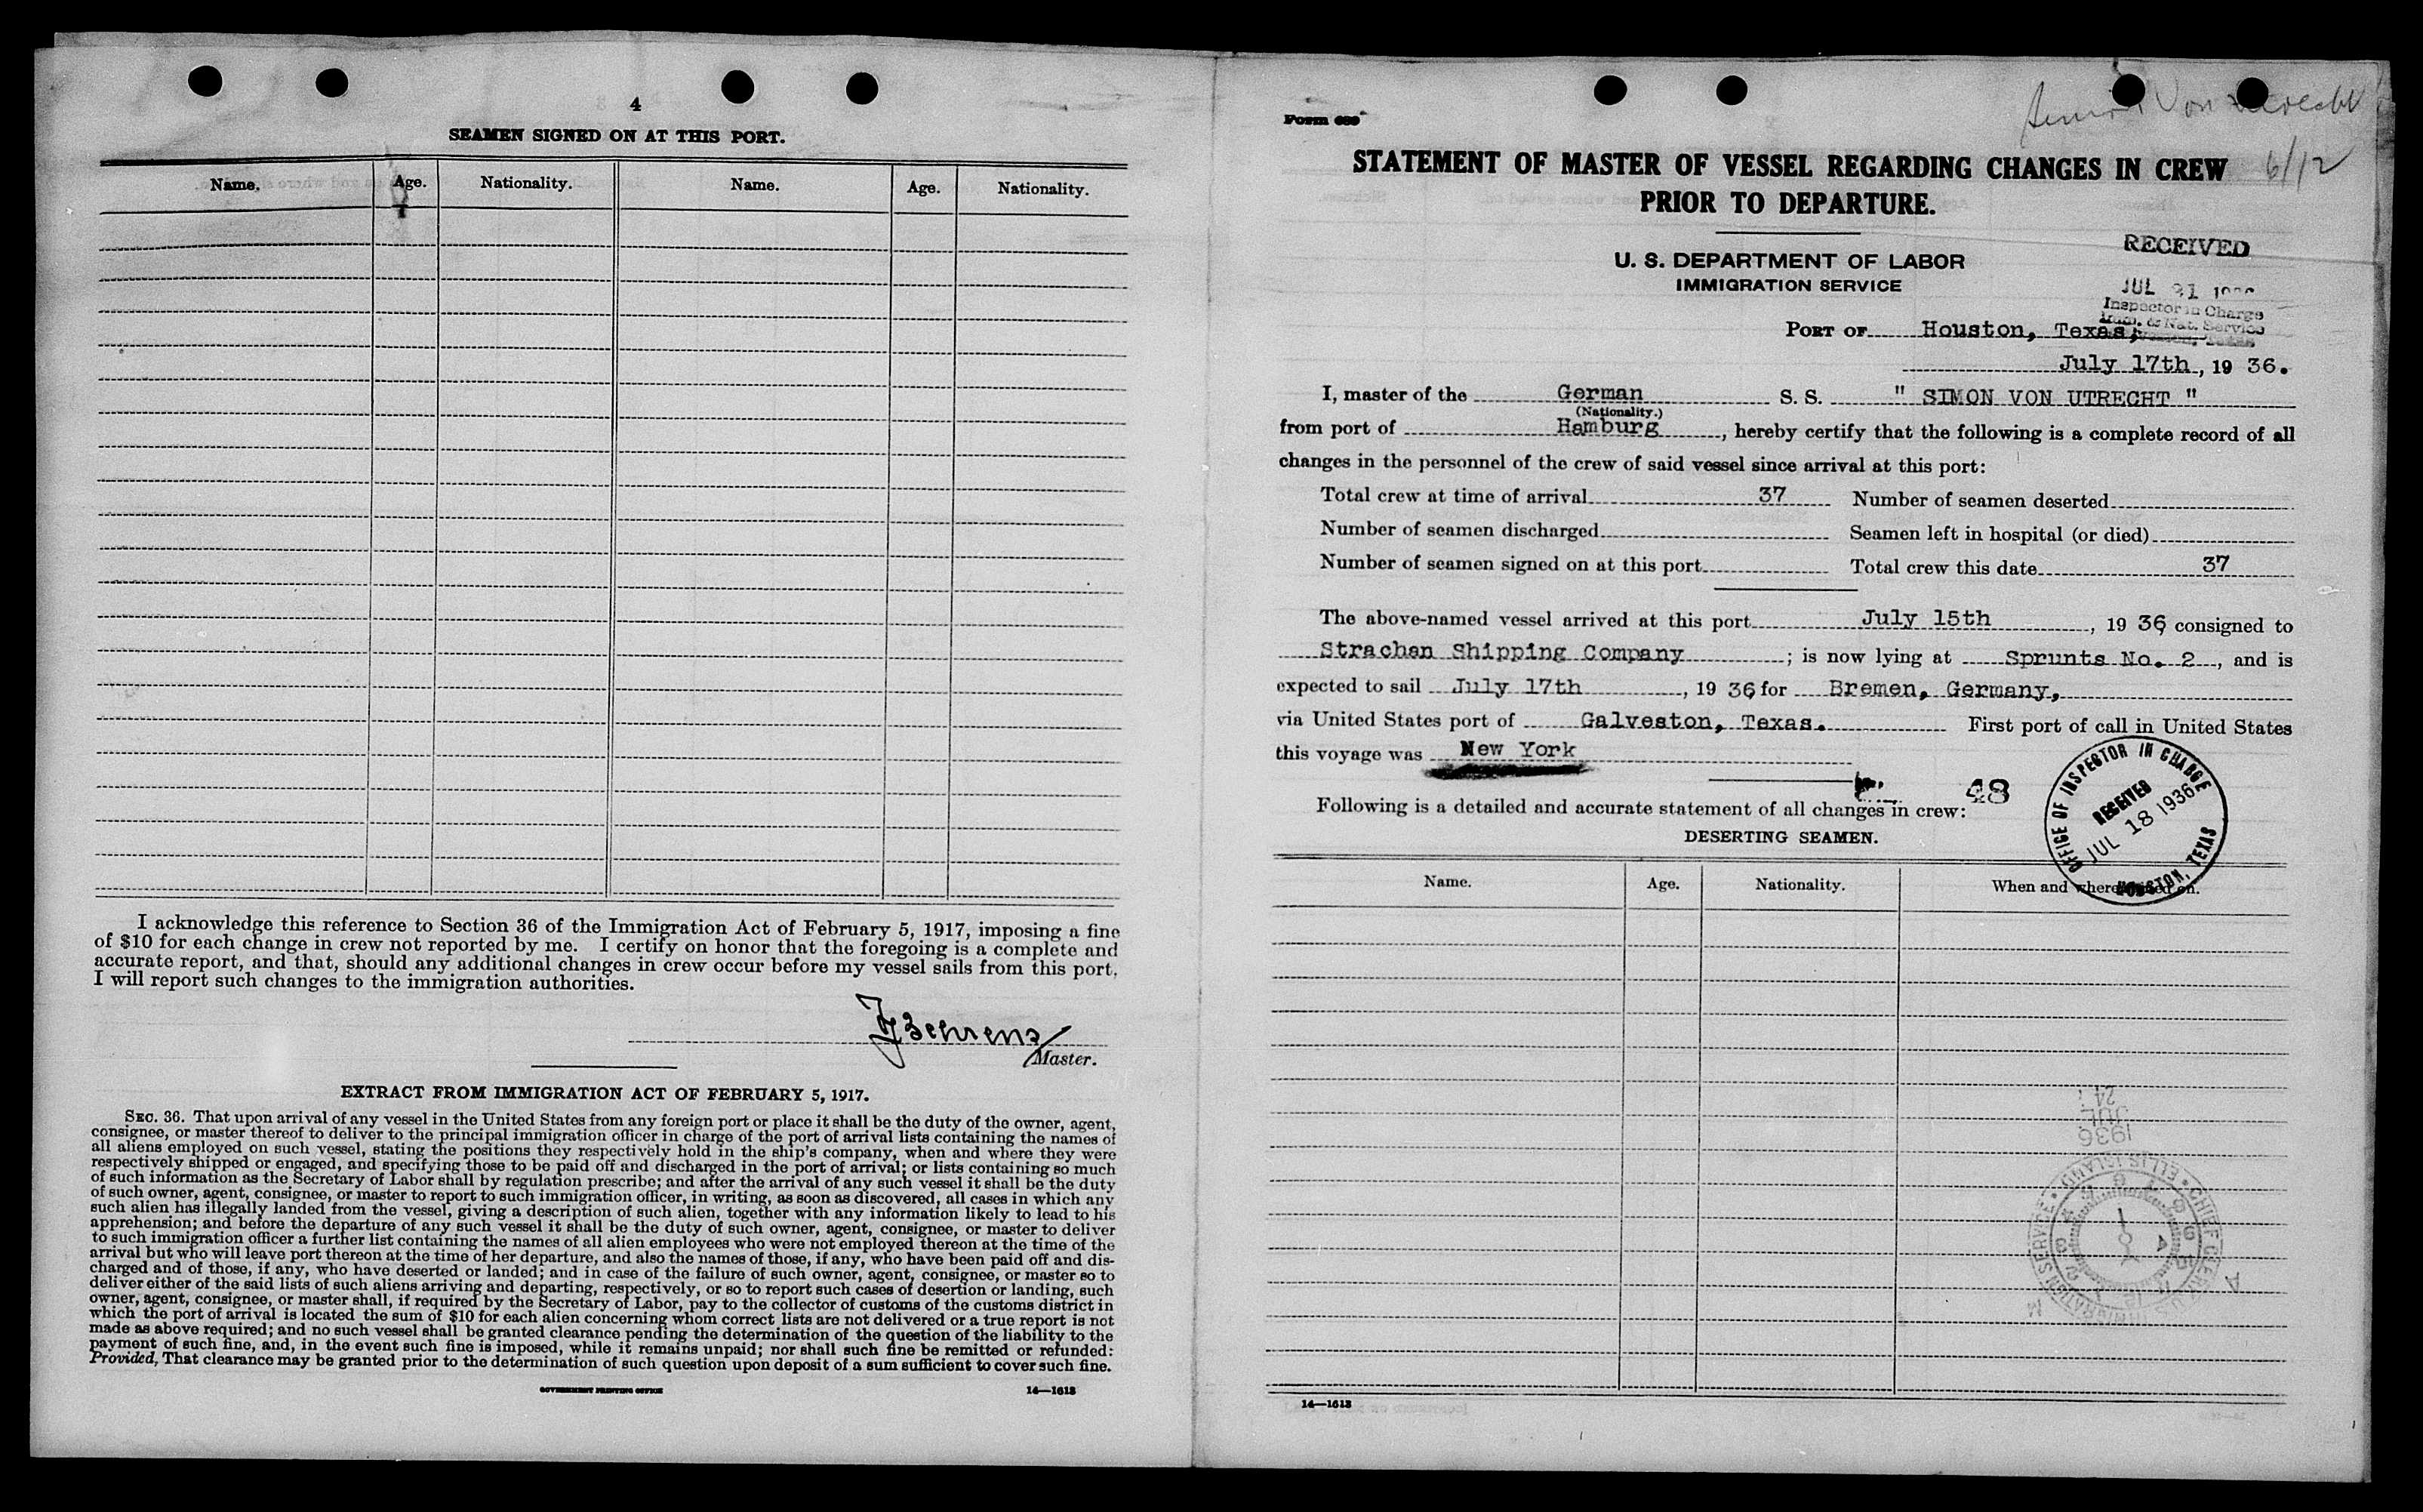 4
SEAMEN SIGNED ON AT THIS PORT.
Name. Age. Nationality. Name. Age. Nationality.
I acknowledge this reference to Section 36 of the Immigration Act of February 5, 1917, imposing a fine
of $10 for each change in crew not reported by me. I certify on honor that the foregoing is a complete and
accurate report, and that, should any additional changes in crew occur before my vessel sails from this port,
I will report such changes to the immigration authorities.
Behrens
Master.
EXTRACT FROM IMMIGRATION ACT OF FEBRUARY 5, 1917.
SEC. 36. That upon arrival of any vessel in the United States from any foreign port or place it shall be the duty of the owner, agent,
consignee, or master thereof to deliver to the principal immigration officer in charge of the port of arrival lists containing the names of
all aliens employed on such vessel, stating the positions they respectively hold in the ship's company, when and where they were
respectively shipped or engaged, and specifying those to be paid off and discharged in the port of arrival; or lists containing so much
of such information as the Secretary of Labor shall by regulation prescribe; and after the arrival of any such vessel it shall be the duty
of such owner, agent, consignee, or master to report to such immigration officer, in writing, as soon as discovered, all cases in which any
such alien has illegally landed from the vessel, giving a description of such alien, together with any information likely to lead to his
apprehension; and before the departure of any such vessel it shall be the duty of such owner, agent, consignee, or master to deliver
to such immigration officer a further list containing the names of all alien employees who were not employed thereon at the time of the
arrival but who will leave port thereon at the time of her departure, and also the names of those, if any, who have been paid off and dis-
charged and of those, if any, who have deserted or landed; and in case of the failure of such owner, agent, consignee, or master so to
deliver either of the said lists of such aliens arriving and departing, respectively, or so to report such cases of desertion or landing, such
owner, agent, consignee, or master shall, if required by the Secretary of Labor, pay to the collector of customs of the customs district in
which the port of arrival is located the sum of $10 for each alien concerning whom correct lists are not delivered or a true report is not
made as above required; and no such vessel shall be granted clearance pending the determination of the question of the liability to the
payment of such fine, and, in the event such fine is imposed, while it remains unpaid; nor shall such fine be remitted or refunded:
Provided, That clearance may be granted prior to the determination of such question upon deposit of a sum sufficient to cover such fine.
GOVERNMENT PRINTING OFFICE 14—1613
Von
Form 689
6/12
STATEMENT OF MASTER OF VESSEL REGARDING CHANGES IN CREW
PRIOR TO DEPARTURE.
RECEIVED
JUL 21
Inspector in Charge
& Nat. Service
U. S. DEPARTMENT OF LABOR
IMMIGRATION SERVICE
PORT OF Houston, Texas,
July 17th, 19 36.
I, master of the German S. S. " SIMON VON UTRECHT "
(Nationality.)
from port of Hamburg, hereby certify that the following is a complete record of all
changes in the personnel of the crew of said vessel since arrival at this port:
Total crew at time of arrival 37 Number of seamen deserted
Number of seamen discharged Seamen left in hospital (or died)
Number of seamen signed on at this port Total crew this date 37
The above-named vessel arrived at this port July 15th, 19 36, consigned to
Strachan Shipping Company; is now lying at Sprunts No. 2, and is
expected to sail July 17th, 19 36, for Bremen, Germany,
via United States port of Galveston, Texas. First port of call in United States
this voyage was New York
48
Following is a detailed and accurate statement of all changes in crew:
OFFICE OF INSPECTOR IN CHARGE
RECEIVED
JUL 18 1936
HOUSTON, TEXAS
DESERTING SEAMEN.
Name. Age. Nationality. When and where on.
24
JUL
1936
ELLIS ISLAND
14—1613